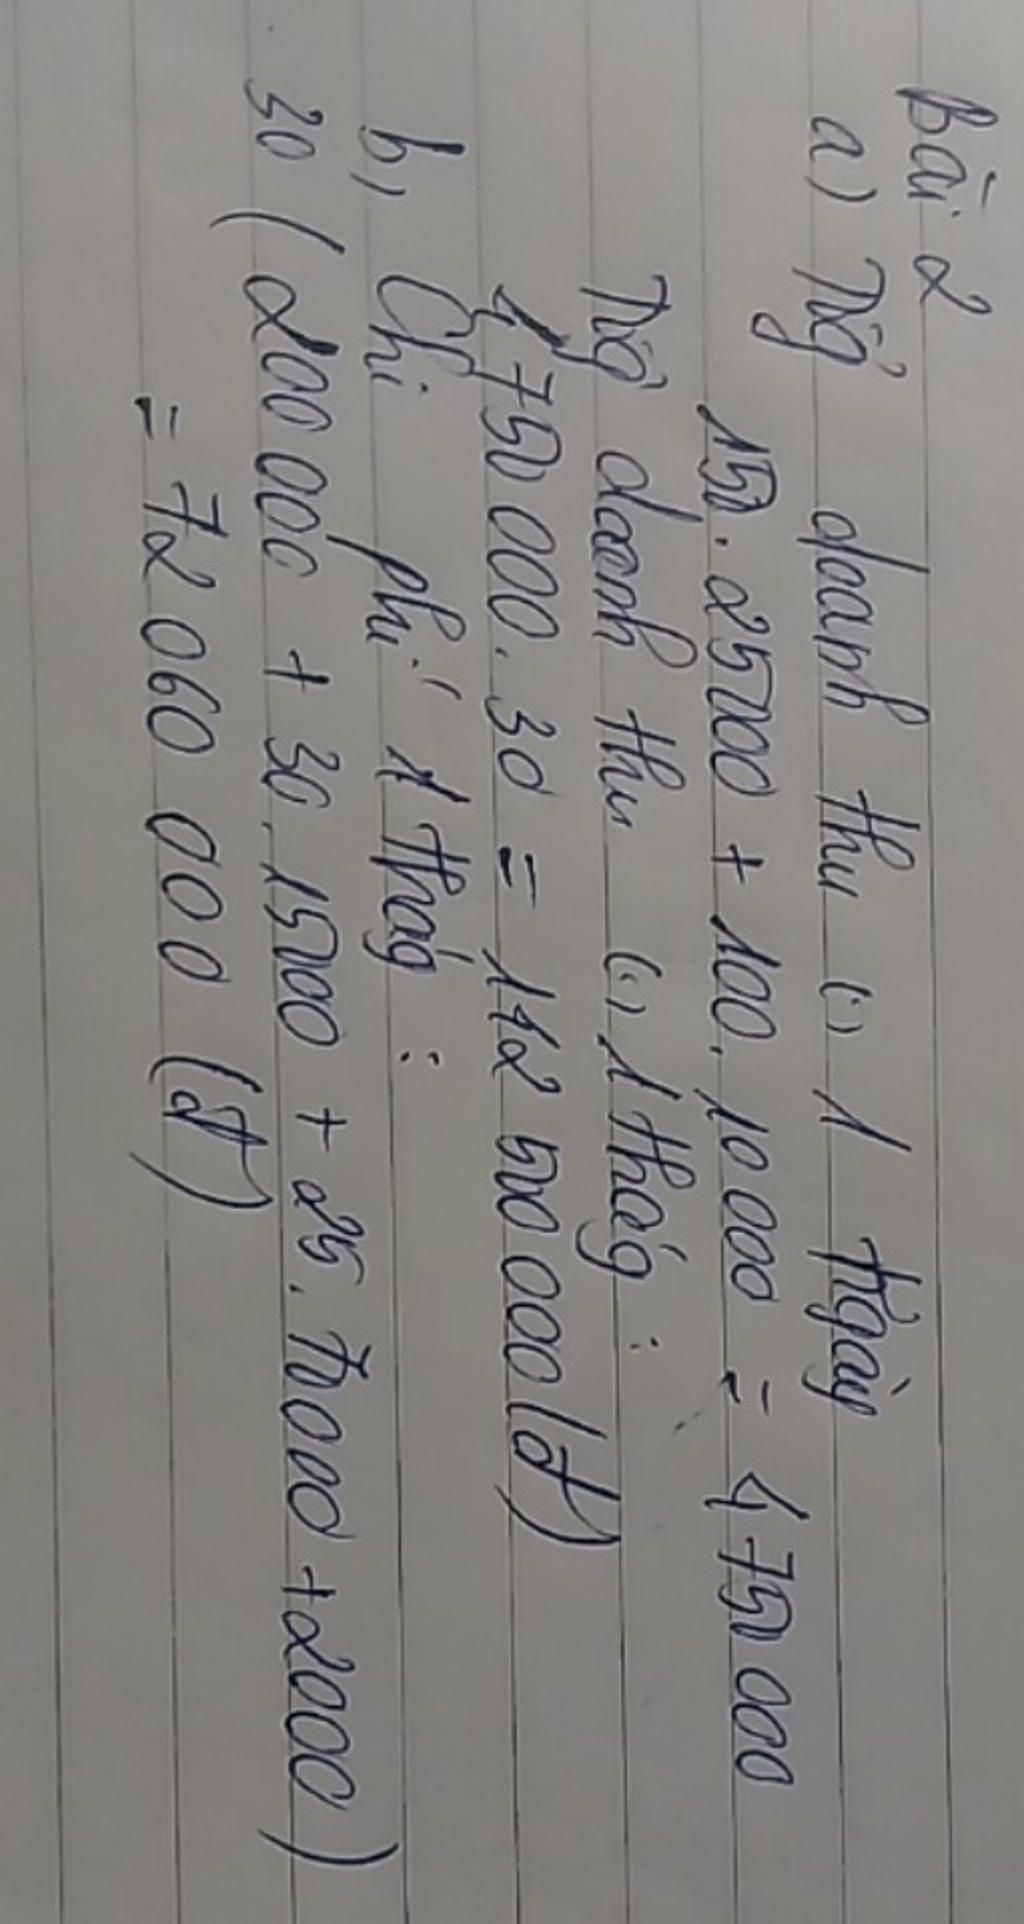 Bài 2
a) Tổg doanh thu (:) 1 Ngày
150. 25000 + 100. 10 000 = 4 750 000
Tổg doanh thu (:) 1 thág :
4 750 000. 30 = 142 500 000 (đ)
b, Chi phí 1 thág :
30 (200 000 + 30. 1500 + 25. 000 + 2000)
= 72 060 000 (đ)